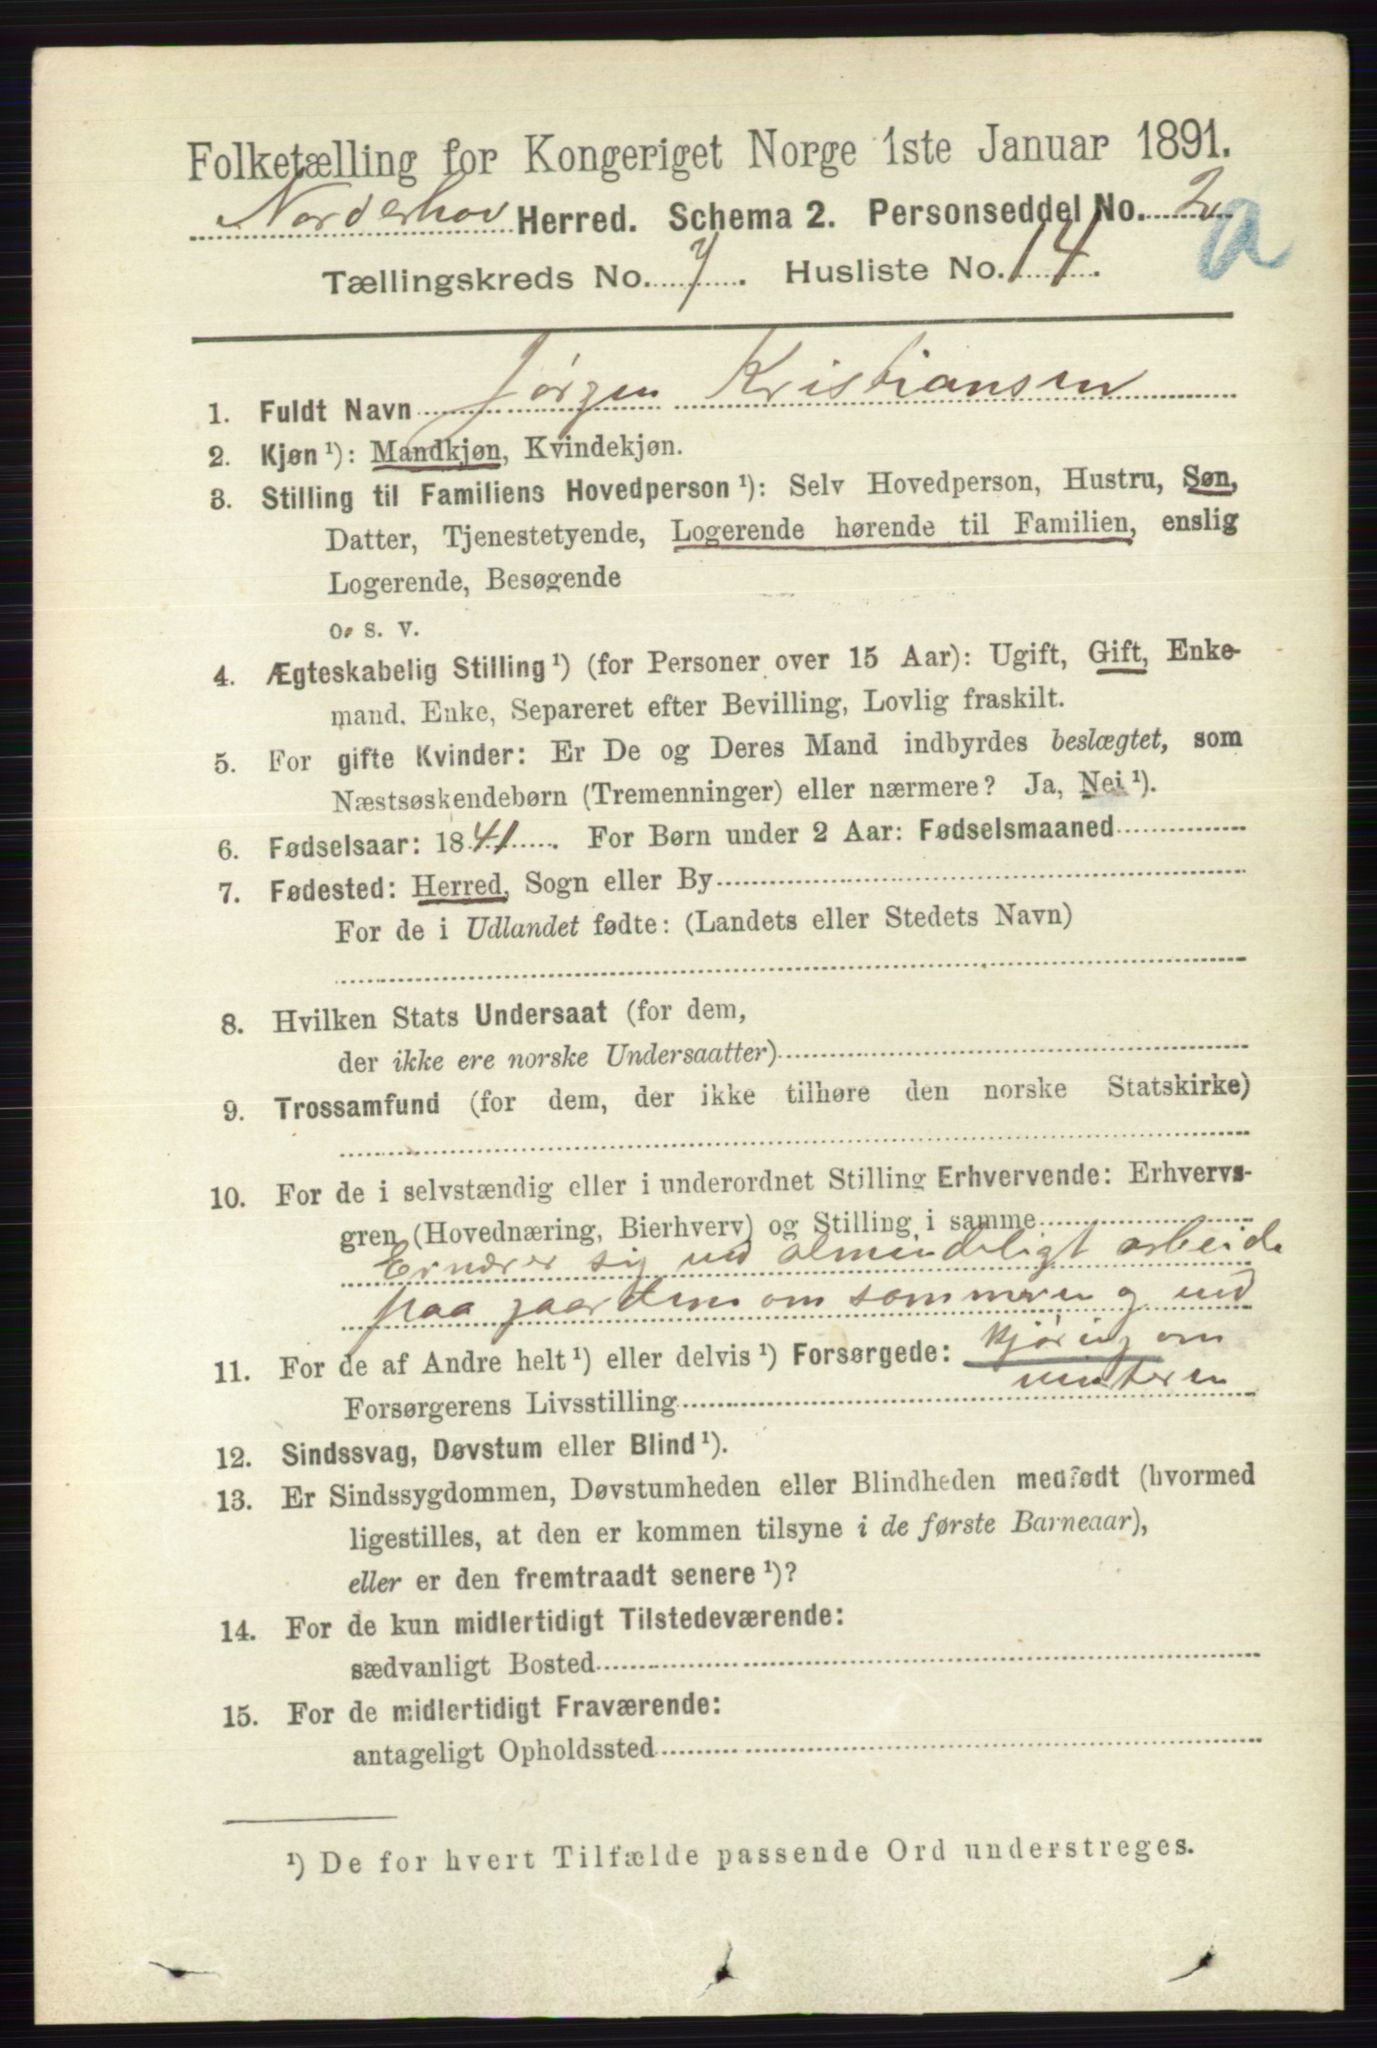 Folketælling for Kongeriget Norge 1ste Januar 1891.
Norderhov Herred. Schema 2. Personseddel No. 2 a
Tællingskreds No. 7. Husliste No. 14.
1. Fuldt Navn Jørgen Kristiansen
2. Kjøn ¹): Mandkjøn, Kvindekjøn.
3. Stilling til Familiens Hovedperson ¹): Selv Hovedperson, Hustru, Søn,
Datter, Tjenestetyende, Logerende hørende til Familien, enslig
Logerende, Besøgende
o. s. v.
4. Ægteskabelig Stilling ¹) (for Personer over 15 Aar): Ugift, Gift, Enke-
mand, Enke, Separeret efter Bevilling, Lovlig fraskilt.
5. For gifte Kvinder: Er De og Deres Mand indbyrdes beslægtet, som
Næstsøskendebørn (Tremenninger) eller nærmere? Ja, Nei ¹).
6. Fødselsaar: 1841. For Børn under 2 Aar: Fødselsmaaned
7. Fødested: Herred, Sogn eller By
For de i Udlandet fødte: (Landets eller Stedets Navn)
8. Hvilken Stats Undersaat (for dem,
der ikke ere norske Undersaatter)
9. Trossamfund (for dem, der ikke tilhøre den norske Statskirke)
10. For de i selvstændig eller i underordnet Stilling Erhvervende: Erhvervs-
gren (Hovednæring, Bierhverv) og Stilling i samme
Ernærer sig ved almindeligt arbeide
paa gaarden om sommeren og ved
11. For de af Andre helt ¹) eller delvis ¹) Forsørgede: kjøring om
vinteren
Forsørgerens Livsstilling
12. Sindssvag, Døvstum eller Blind ¹).
13. Er Sindssygdommen, Døvstumheden eller Blindheden medfødt (hvormed
ligestilles, at den er kommen tilsyne i de første Barneaar),
eller er den fremtraadt senere ¹)?
14. For de kun midlertidigt Tilstedeværende:
sædvanligt Bosted
15. For de midlertidigt Fraværende:
antageligt Opholdssted
¹) De for hvert Tilfælde passende Ord understreges.